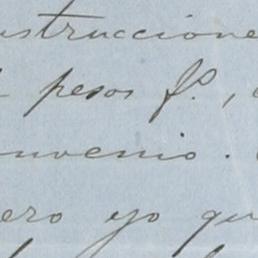 nstruccione
pesos fº,
nvenio.
ero yo qu